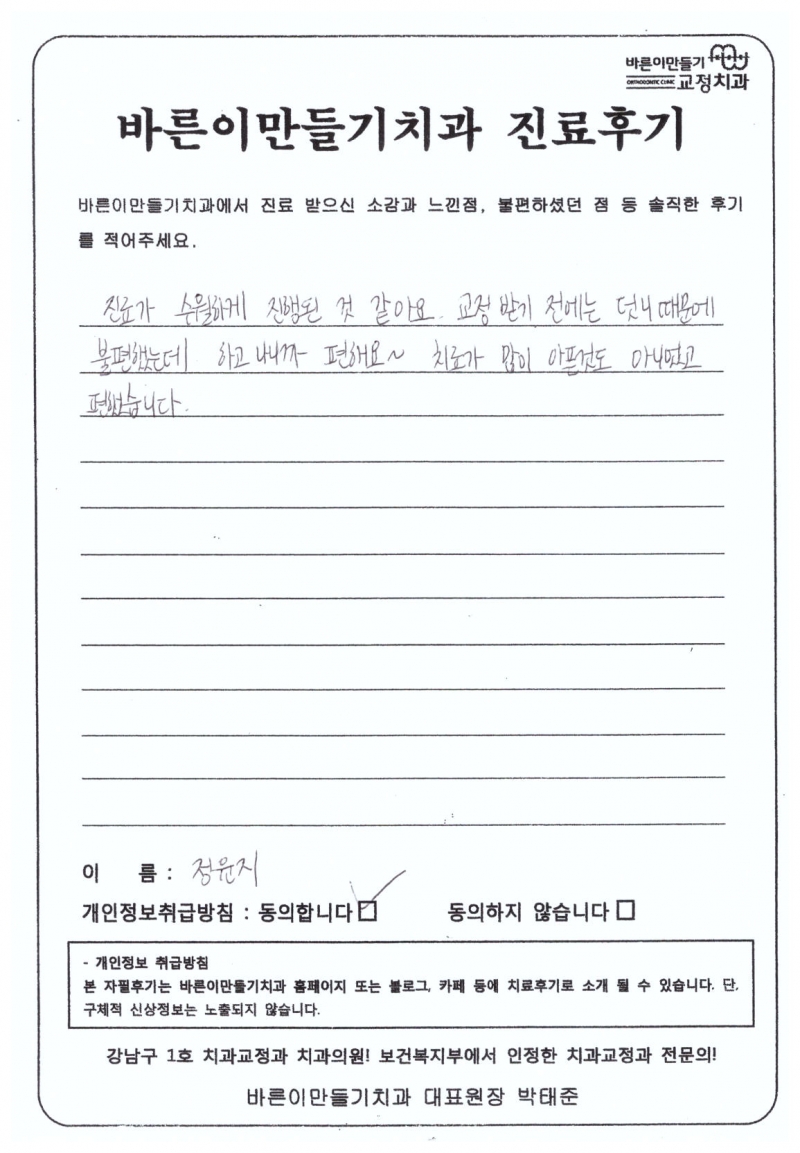 바른이만들기
ORTHODONTIC CLINIC 교정치과
바른이만들기치과 진료후기
바른이만들기치과에서 진료 받으신 소감과 느낀점, 불편하셨던 점 등 솔직한 후기
를 적어주세요.
진료가 수월하게 진행된 것 같아요. 교정 받기 전에는 덧니 때문에
불편했는데 하고 나니까 편해요~ 치료가 많이 아픈것도 아니었고
편했습니다.
이 름 : 정윤지
개인정보취급방침 : 동의합니다 동의하지 않습니다
- 개인정보 취급방침
본 자필후기는 바른이만들기치과 홈페이지 또는 블로그, 카페 등에 치료후기로 소개 될 수 있습니다. 단,
구체적 신상정보는 노출되지 않습니다.
강남구 1호 치과교정과 치과의원! 보건복지부에서 인정한 치과교정과 전문의!
바른이만들기치과 대표원장 박태준